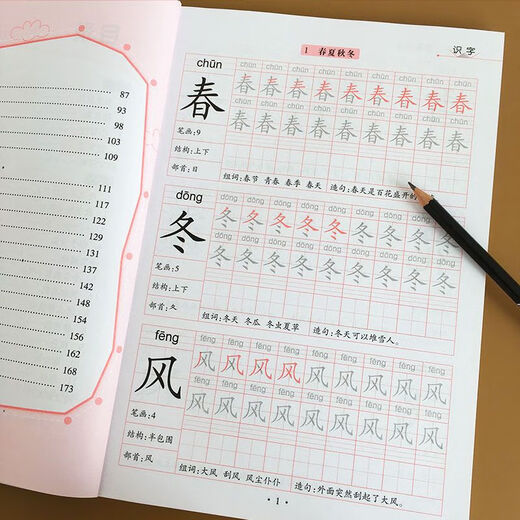 87
93
98
103
109
111
117
122
129
131
137
142
148
154
156
162
168
173
1 春夏秋冬
识字
chūn
春
chūn chūn chūn chūn chūn chūn chūn chūn chūn
春 春 春 春 春 春 春 春 春
chūn chūn chūn chūn chūn chūn chūn chūn chūn
春 春 春 春 春 春 春 春 春
笔画:9
结构:上下
部首:日
组词:春节 青春 春季 春天 造句:春天是百花盛开的
dōng
冬
dōng dōng dōng dōng dōng dōng dōng dōng dōng
冬 冬 冬 冬 冬 冬 冬 冬 冬
dōng dōng dōng dōng dōng dōng dōng dōng dōng
冬 冬 冬 冬 冬 冬 冬 冬 冬
笔画:5
结构:上下
部首:夂
组词:冬天 冬瓜 冬虫夏草 造句:冬天可以堆雪人。
fēng
风
fēng fēng fēng fēng fēng fēng fēng fēng
风 风 风 风 风 风 风 风
fēng fēng fēng fēng fēng fēng fēng fēng
风 风 风 风 风 风 风 风
笔画:4
结构:半包围
部首:风
组词:大风 刮风 风尘仆仆 造句:外面突然刮起了大风。
1